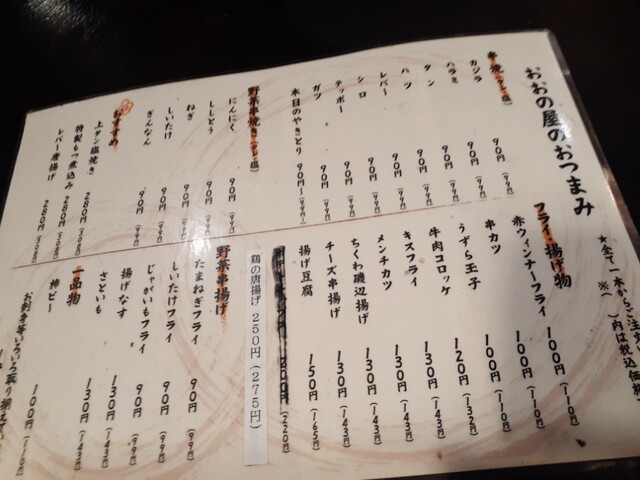 おおの屋のおつまみ
★全て一本からご注文
※( )内は税込価格
串焼き(タレ・塩)
カシラ 90円(99円)
ハラミ 90円(99円)
タン 90円(99円)
ハツ 90円(99円)
レバー 90円(99円)
シロ 90円(99円)
テッポー 90円(99円)
ガツ 90円(99円)
本日のやきとり 90円~(99円)
野菜串焼き(タレ・塩)
にんにく 90円(99円)
ししとう 90円(99円)
ねぎ 90円(99円)
しいたけ 90円(99円)
ぎんなん 90円(99円)
おすすめ
上タン塩焼き 280円(308円)
特製もつ煮込み 250円
レバー唐揚げ 280円(308円)
フライ・揚げ物
赤ウィンナーフライ 100円(110円)
串カツ 100円(110円)
うずら玉子 120円(132円)
牛肉コロッケ 130円(143円)
キスフライ 130円(143円)
メンチカツ 130円(143円)
ちくわ磯辺揚げ 130円(143円)
チーズ串揚げ 130円(143円)
揚げ豆腐 150円(165円)
200円(220円)
鶏の唐揚げ 250円(275円)
野菜串揚げ
たまねぎフライ 90円(99円)
しいたけフライ 90円(99円)
じゃがいもフライ 90円(99円)
揚げなす 130円(143円)
さといも 130円(143円)
一品物
枝ビー 100円(110円)